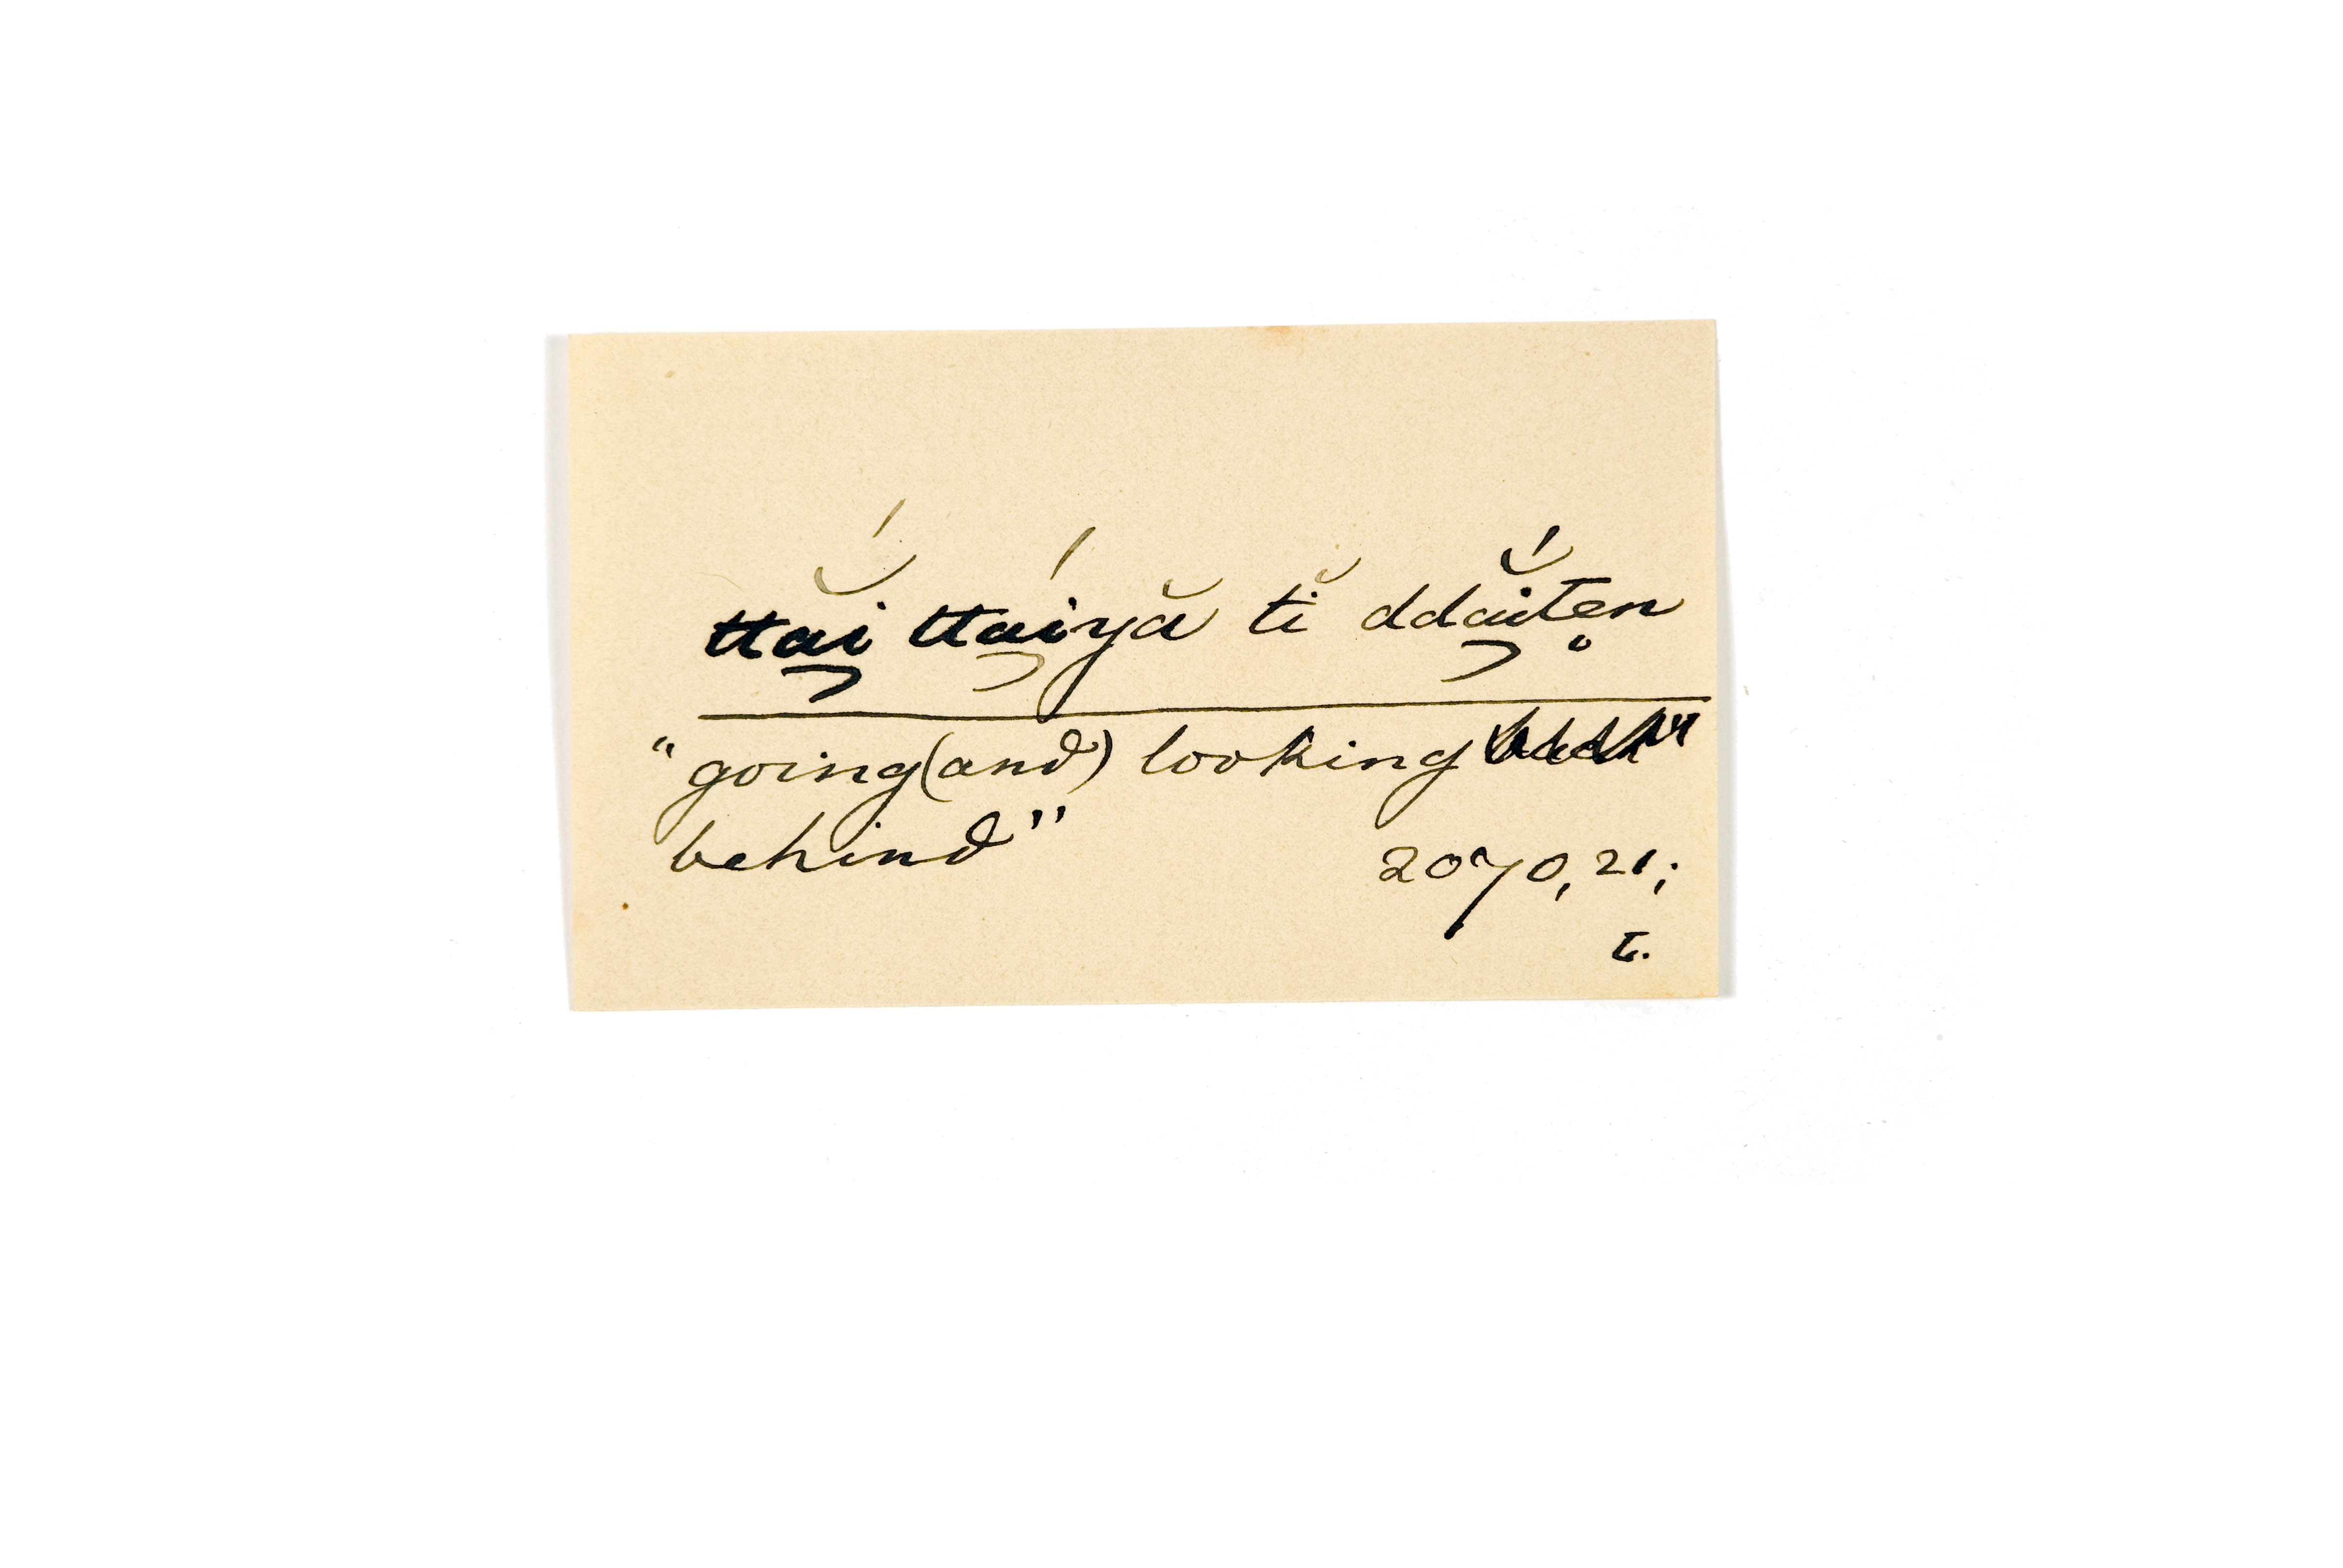 ttắi̯ ttái̯yă tĭ ddắi̯ten̥
"going (and) looking
behind" 2070, 21;
t.